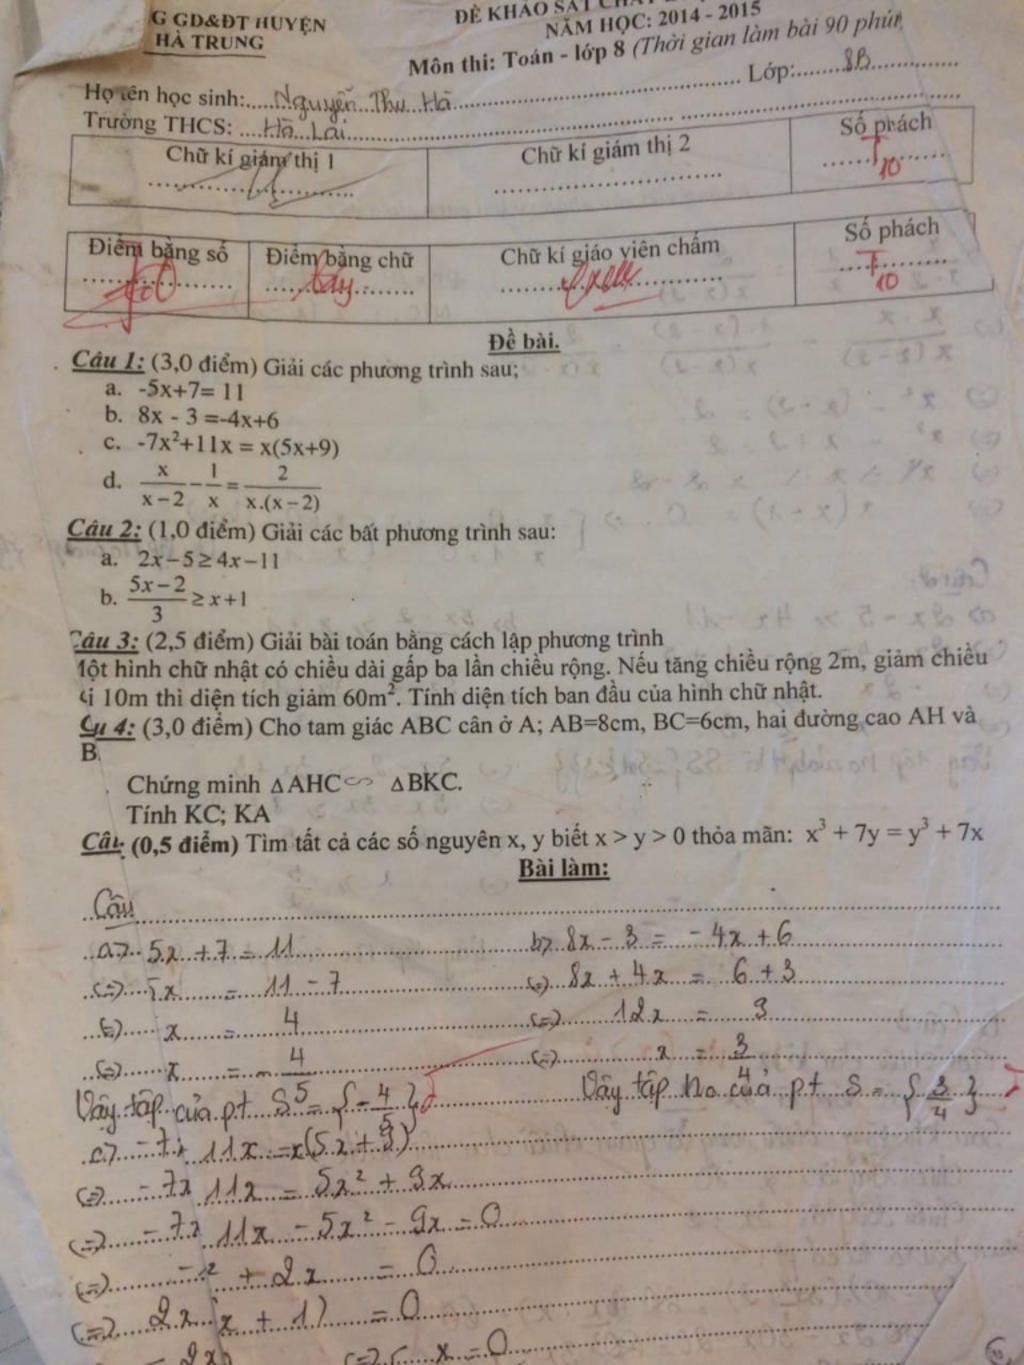 G GD&ĐT HUYỆN
HÀ TRUNG
ĐỀ KHẢO SÁT
NĂM HỌC: 2014 - 2015
Môn thi: Toán - lớp 8 (Thời gian làm bài 90 phút
Họ tên học sinh: Nguyễn Thu Hà Lớp: 8B
Trường THCS: Hà Lai
Chữ kí giám thị 1 Chữ kí giám thị 2 Số phách
T10
Điểm bằng số Điểm bằng chữ Chữ kí giáo viên chấm Số phách
T10
Đề bài.
Câu 1: (3,0 điểm) Giải các phương trình sau;
a. -5x+7= 11
b. 8x - 3 =-4x+6
c. -7x²+11x = x(5x+9)
d. x/(x-2) - 1/x = 2/(x.(x-2))
Câu 2: (1,0 điểm) Giải các bất phương trình sau:
a. 2x-5≥4x-11
b. (5x-2)/3 ≥ x+1
Câu 3: (2,5 điểm) Giải bài toán bằng cách lập phương trình
Một hình chữ nhật có chiều dài gấp ba lần chiều rộng. Nếu tăng chiều rộng 2m, giảm chiều
i 10m thì diện tích giảm 60m². Tính diện tích ban đầu của hình chữ nhật.
u 4: (3,0 điểm) Cho tam giác ABC cân ở A; AB=8cm, BC=6cm, hai đường cao AH và
B
Chứng minh ΔAHC∽ ΔBKC.
Tính KC; KA
Câu (0,5 điểm) Tìm tất cả các số nguyên x, y biết x > y > 0 thỏa mãn: x³ + 7y = y³ + 7x
Bài làm:
Câu
a> - 5x + 7 = 11 b> 8x - 3 = - 4x + 6
(=) - 5x = 11 - 7 (=) 8x + 4x = 6 + 3
(=) x = 4 (=) 12x = 9
(=) x = - 4/5 (=) x = 3/4
Vậy tập của pt S = {-4/5} Vậy tập no của pt S = {3/4}
c> -7x 11x = x(5x + 9)
(=) - 7x 11x = 5x² + 9x
(=) - 7x 11x - 5x² - 9x = 0
(=) - ² + 2x = 0
(=) 2x (x + 1) = 0
2x (=) x = 0